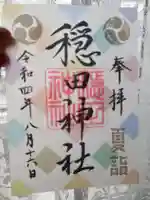 奉拝
夏詣
穏田神社
令和四年八月十六日